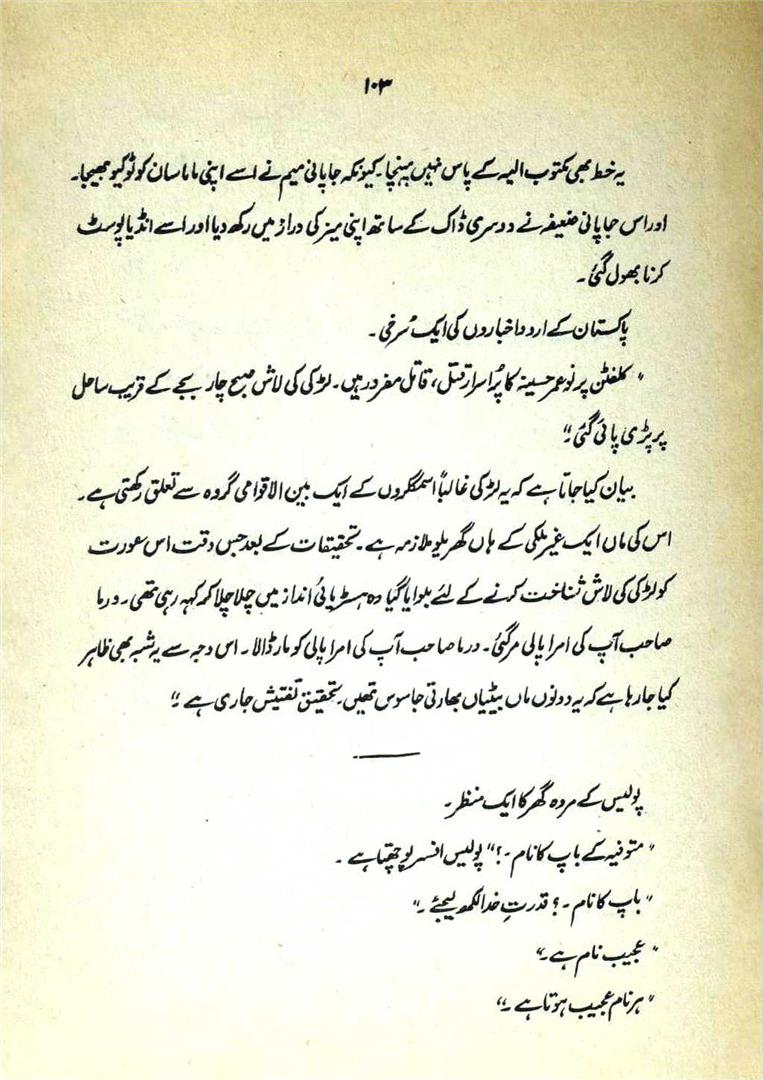 ۱۰۳
یہ خط بھی مکتوب الیہ کے پاس نہیں پہنچا۔ کیونکہ جاپانی میم نے اسے اپنی ماماسان کو ٹوکیو بھیجا۔
اور اس جاپانی ضعیفہ نے دوسری ڈاک کے ساتھ اپنی میز کی دراز میں رکھ دیا اور اسے انڈیا پوسٹ
کرنا بھول گئی۔
پاکستان کے اردو اخباروں کی ایک سُرخی۔
"کلفٹن پر نو عمر حسینہ کا پُراسرار قتل، قاتل مفرور ہیں۔ لڑکی کی لاش صبح چار بجے کے قریب ساحل
پر پڑی پائی گئی۔"
بیان کیا جاتا ہے کہ یہ لڑکی غالباً اسمگلروں کے ایک بین الاقوامی گروہ سے تعلق رکھتی ہے۔
اس کی ماں ایک غیر ملکی کے ہاں گھریلو ملازمہ ہے۔ تحقیقات کے بعد جس وقت اس عورت
کو لڑکی کی لاش شناخت کرنے کے لئے بلوایا گیا وہ ہسٹریائی انداز میں چلا چلا کر کہہ رہی تھی۔ ورما
صاحب آپ کی امراپالی مر گئی۔ ورما صاحب آپ کی امراپالی کو مار ڈالا۔ اس وجہ سے یہ شبہ بھی ظاہر
کیا جا رہا ہے کہ یہ دونوں ماں بیٹیاں بھارتی جاسوس تھیں۔ تحقیق تفتیش جاری ہے۔"
پولیس کے مردہ گھر کا ایک منظر۔
"متوفیہ کے باپ کا نام۔؟" پولیس افسر پوچھتا ہے۔
"باپ کا نام۔؟ قدرتِ خدا لکھ لیجئے۔"
"عجیب نام ہے۔"
"ہر نام عجیب ہوتا ہے۔"